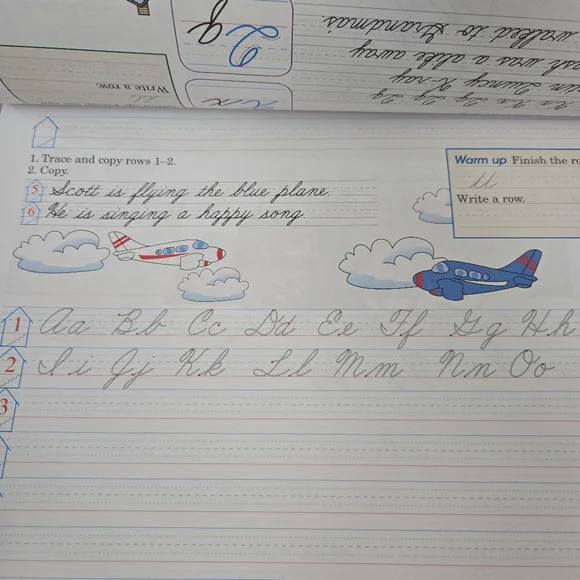 walked to Grandma's
was a away
Quincy X-ray
Qq
Write a row.
1. Trace and copy rows 1–2.
2. Copy.
5 Scott is flying the blue plane.
6 He is singing a happy song.
Warm up Finish the
Write a row.
1 Aa Bb Cc Dd Ee Ff Gg Hh
2 Ii Jj Kk Ll Mm Nn Oo
3